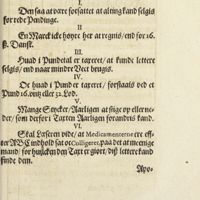 I.
Den saa at være forfattet at alting kand selgis
for rede Pendinge.
II
En Marck icke høyre her at regnis/ end for 16.
ß. Danst.
III.
Huad i Pundetal er taxeret/ at kunde lettere
selgis/ end naar mindre Vect brugis.
IV
Oc huad i Pund er taxeret/ forstaais ved et
Pund 16. untz eller 32. Lod.
V.
Mange Stycker/ Aarligen at stige op eller ne-
der/ som derfore Taxten Aarligen forandris kand.
VI.
Skal Læseren vide/ at Medicamenterne ere eff-
ter ABC indhold sat oc Colligeret, paa det at menige
mand/ for huilcken den Taxt er giort/ diß lettere kand
finde dem.
Apo-